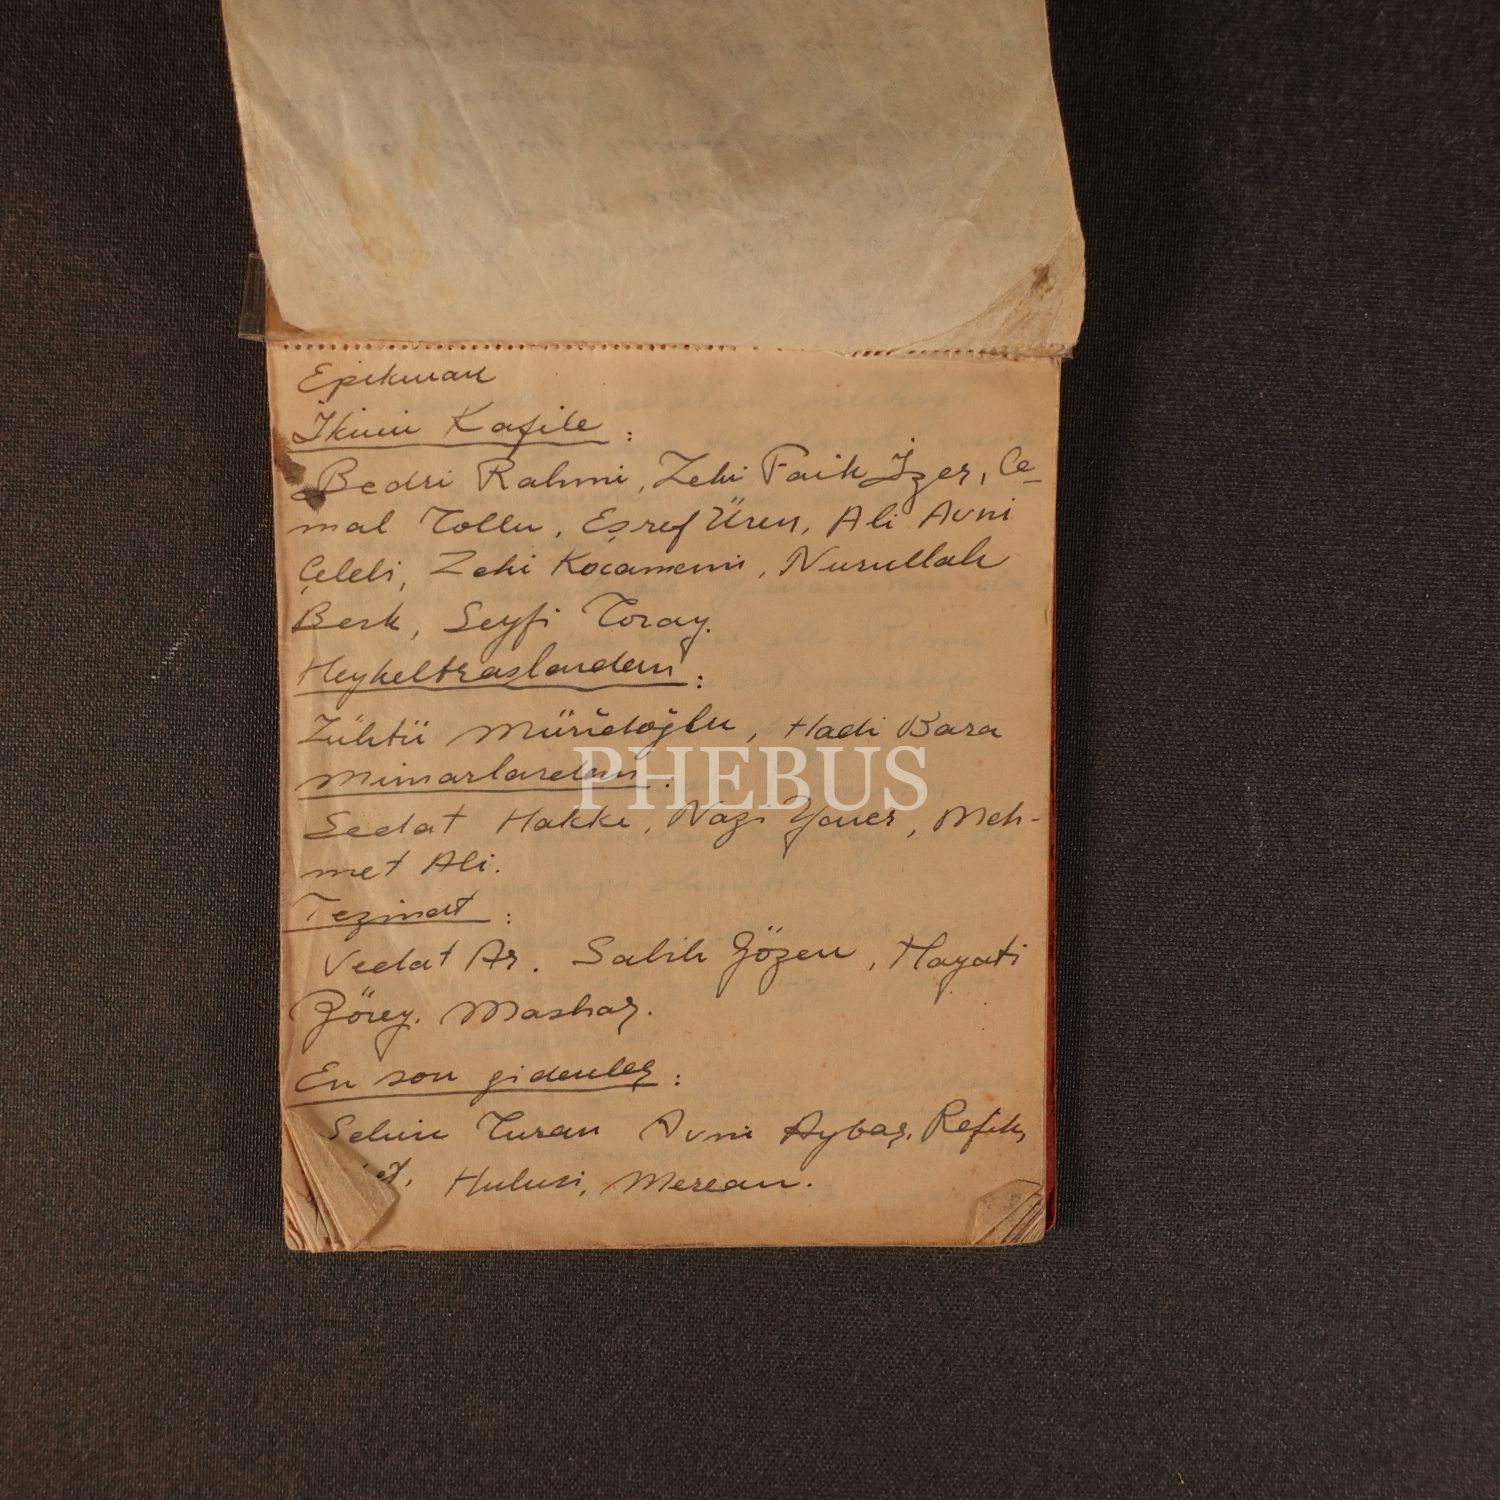 Epikman
İkinci Kafile :
Bedri Rahmi, Zeki Faik İzer, Ce-
mal Tollu, Eşref Üren, Ali Avni
Çelebi, Zeki Kocamemi, Nurullah
Berk, Seyfi Toray.
Heykeltraşlardan :
Zühtü Müridoğlu, Hadi Bara
Mimarlardan :
PHEBUS
Sedat Hakkı, Nazi Yaver, Meh-
met Ali.
Tezinat :
Vedat Ar. Salih Gözen, Hayati
Görey. Mashar.
En son gidenler :
Selim Turan Avni Aybaş, Refik,
Hulusi, Mercan.